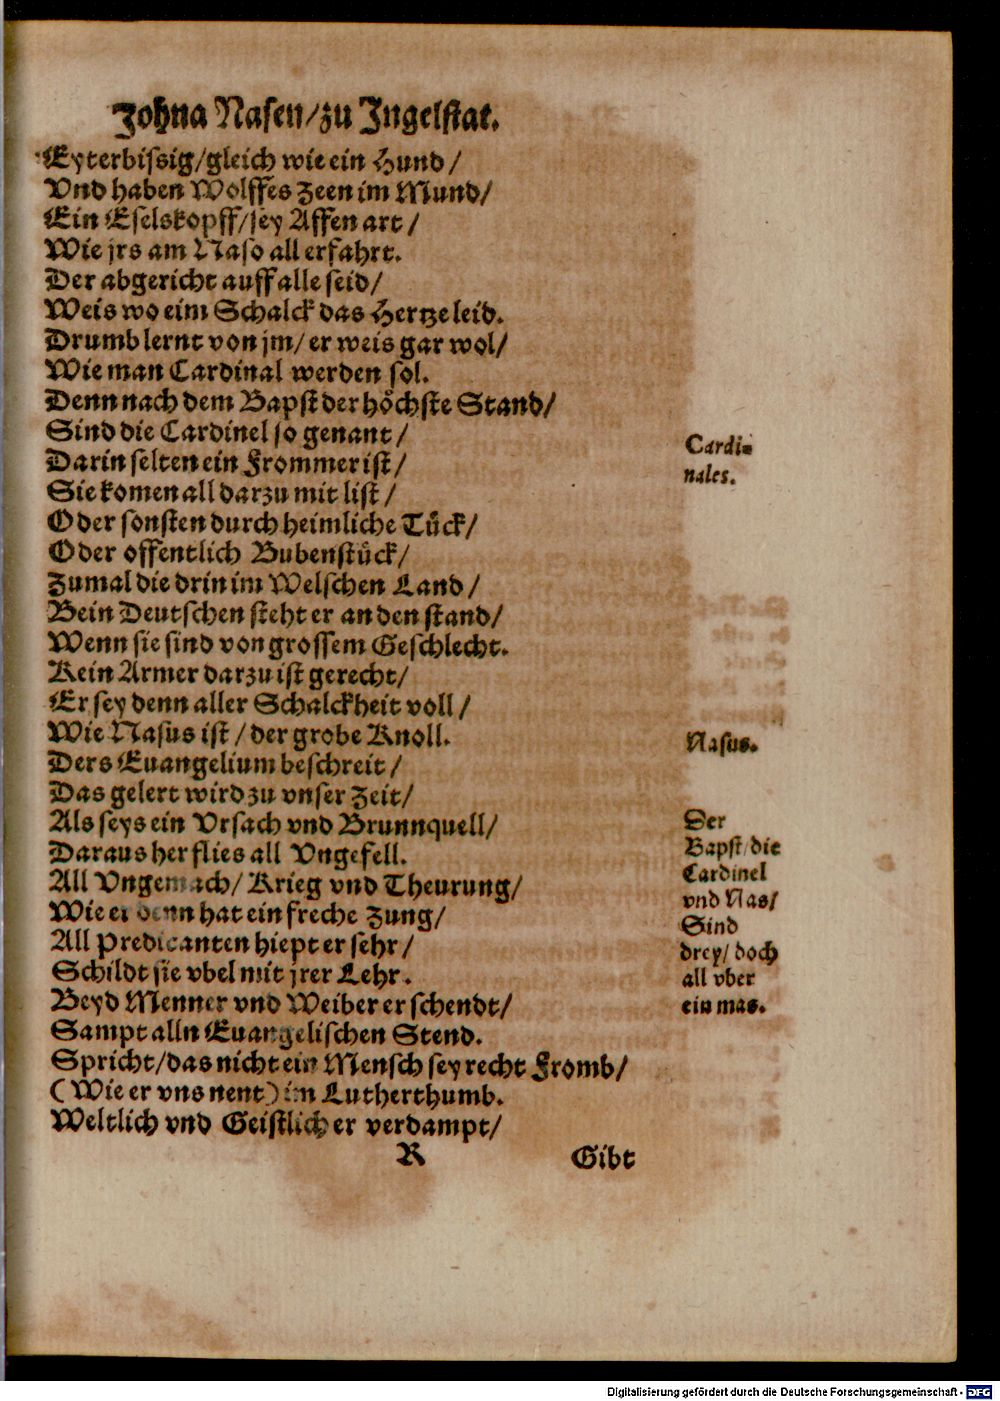 Johna Nasen/zu Ingelstat.
Eyterbissig/gleich wie ein Hund/
Vnd haben Wolffes Zeen im Mund/
Ein Eselskopff/sey Affen art/
Wie jrs am Naso all erfahrt.
Der abgericht auff alle seid/
Weis wo eim Schalck das Hertze leid.
Drumb lernt von jm/ er weis gar wol/
Wie man Cardinal werden sol.
Denn nach dem Bapst der höchste Stand/
Sind die Cardinel so genant/
Darin selten ein Frommer ist/
Sie komen all darzu mit list/
Oder sonsten durch heimliche Tück/
Oder offentlich Bubenstück/
Zumal die drin im Welschen Land/
Bein Deutschen steht er an den stand/
Wenn sie sind von grossem Geschlecht.
Kein Armer darzu ist gerecht/
Er sey denn aller Schalckheit voll/
Wie Nasus ist/ der grobe Knoll.
Ders Euangelium beschreit/
Das gelert wird zu vnser Zeit/
Als seys ein Vrsach vnd Brunnquell/
Daraus her flies all Vngefell.
All Vngemach/ Krieg vnd Theurung/
Wie er denn hat ein freche Zung/
All Predicanten hiept er sehr/
Schildt sie vbel mit jrer Lehr.
Beyd Menner vnd Weiber er schendt/
Sampt alln Euangelischen Stend.
Spricht/das nicht ein Mensch sey recht Fromb/
(Wie er vns nent) im Lutherthumb.
Weltlich vnd Geistlich er verdampt/
R Gibt
Cardi-
nales.
Nasus.
Der
Bapst/die
Cardinel
vnd Nas/
Sind
drey/ doch
all vber
ein mas.
Digitalisierung gefördert durch die Deutsche Forschungsgemeinschaft - DFG